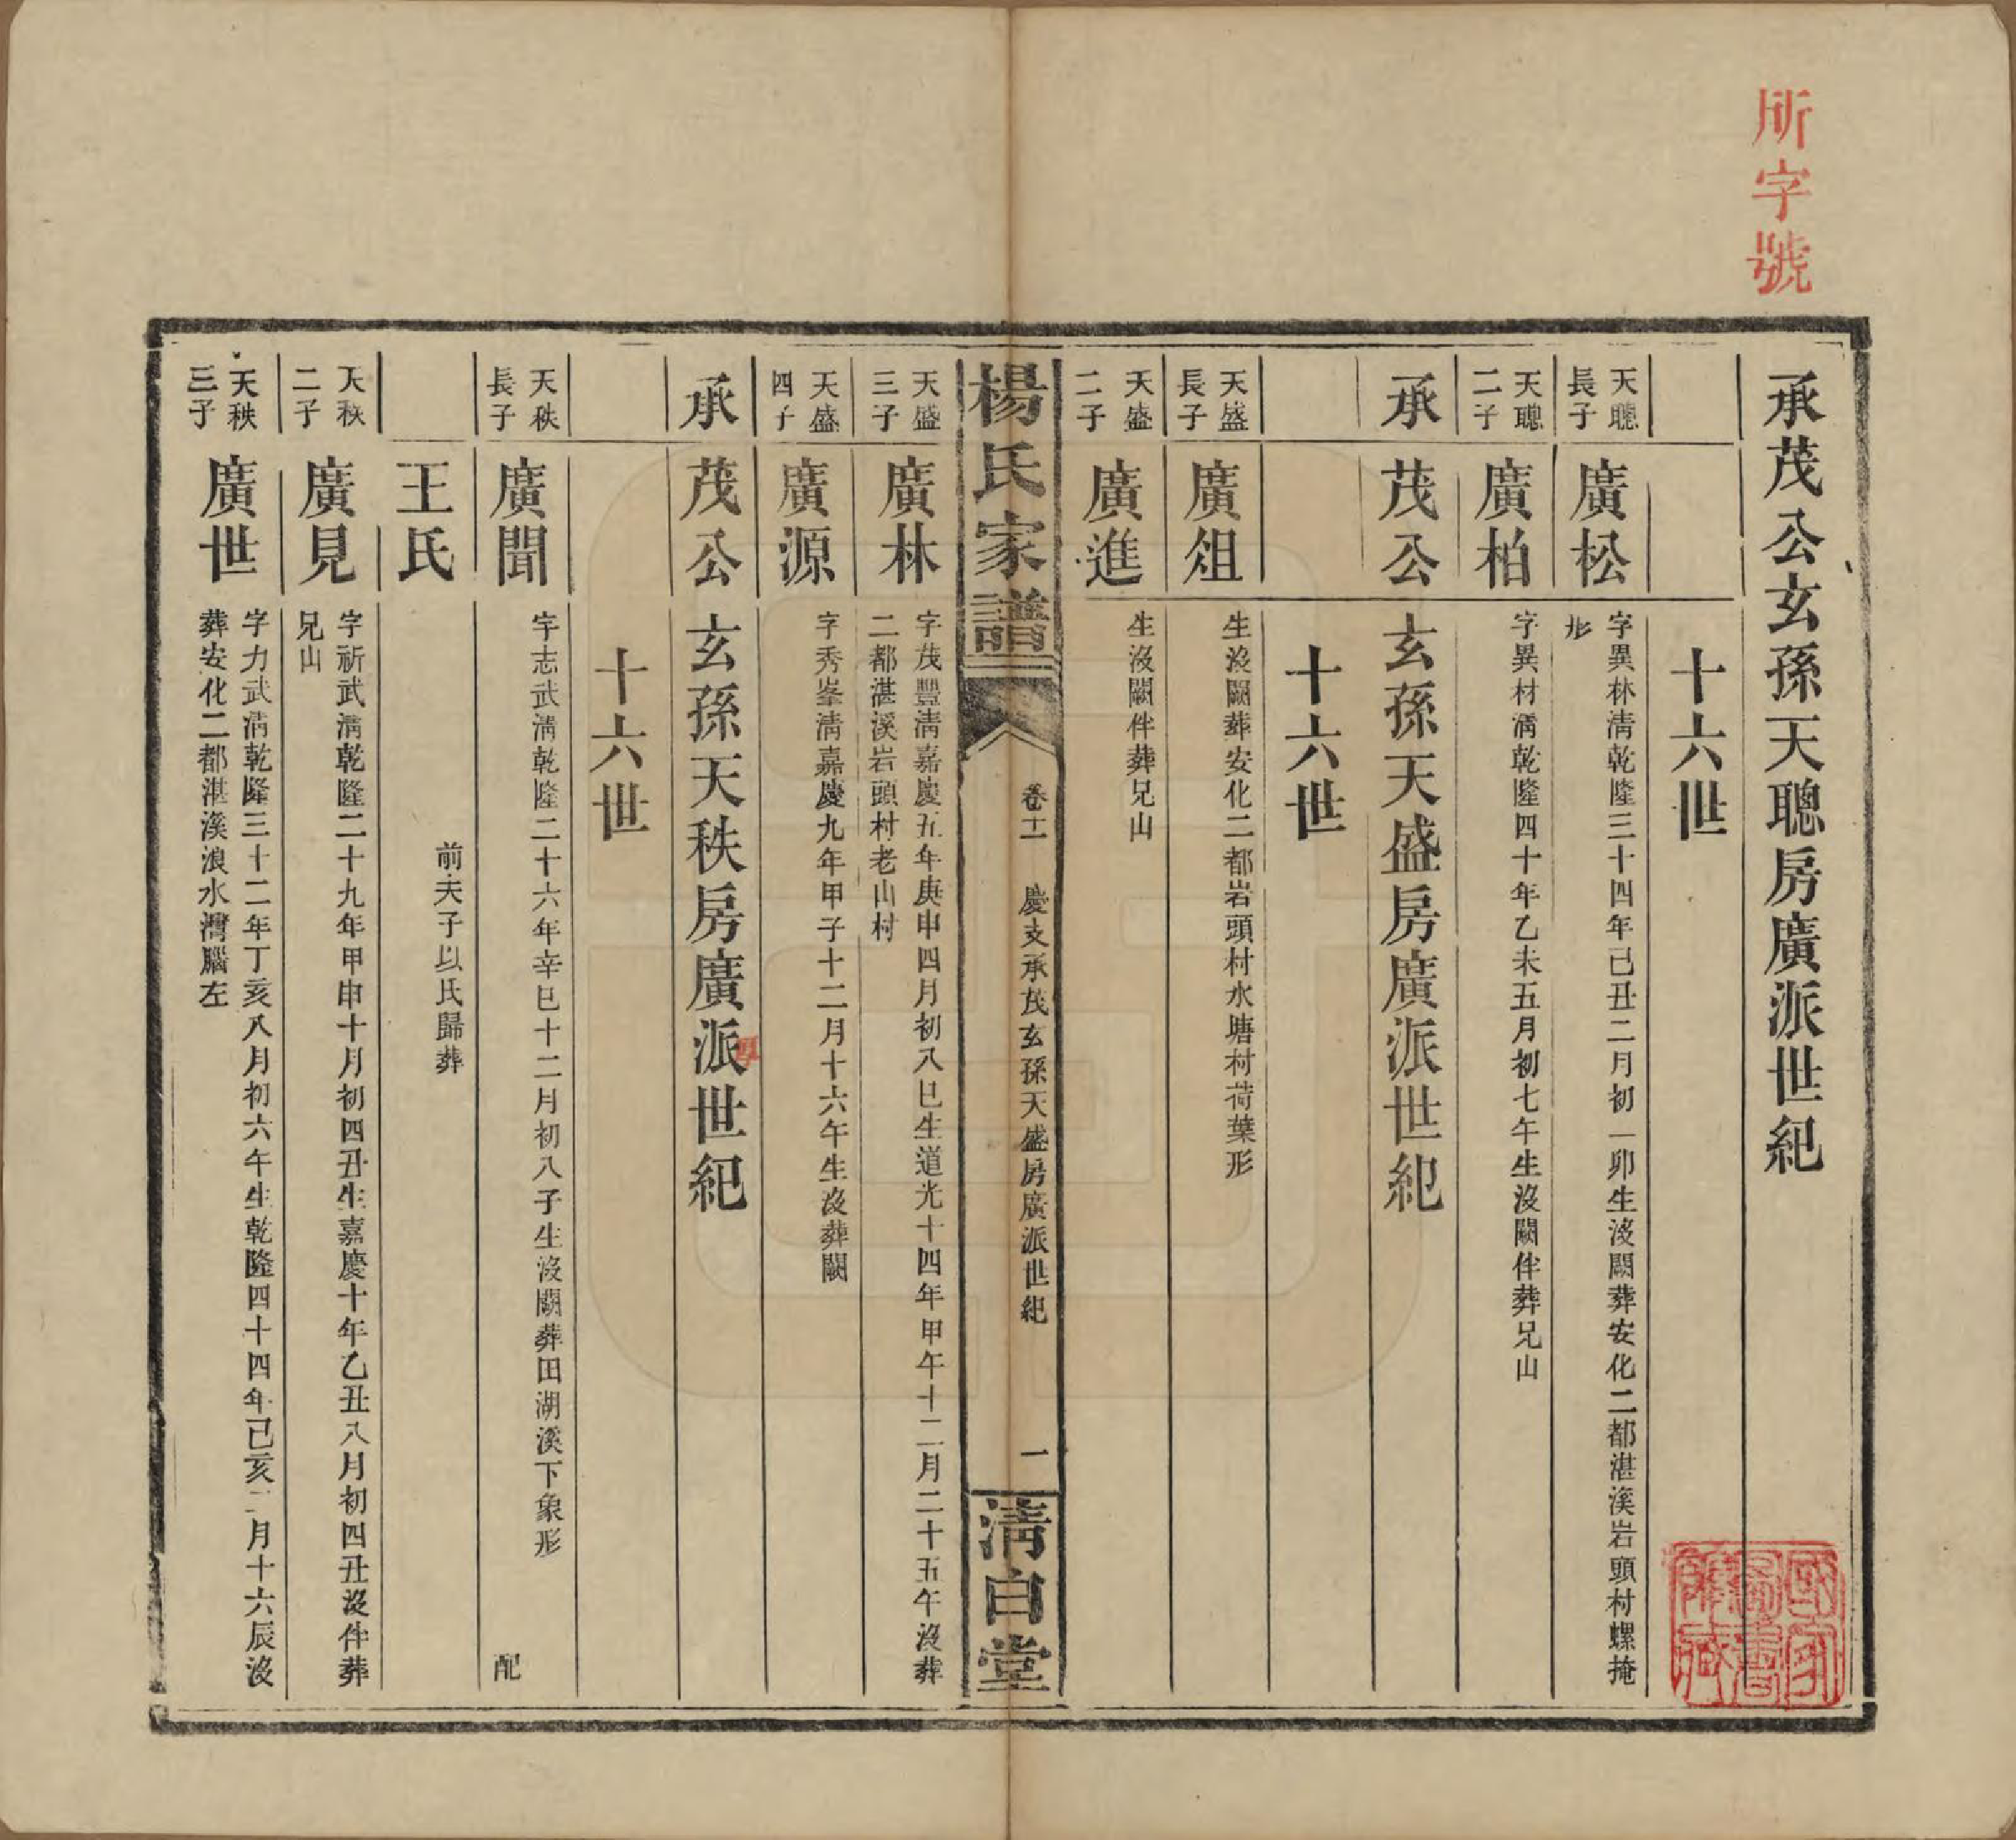 所字號
承茂公玄孫天聰房廣派世紀
十六世
天聰長子
廣松
字異林淸乾隆三十四年已丑二月初一卯生沒闕葬安化二都湛溪岩頭村螺掩
形
天聰二子
廣柏
字異材淸乾隆四十年乙未五月初七午生沒闕伴葬兄山
承茂公玄孫天盛房廣派世紀
十六世
天盛長子
廣俎
生沒闕葬安化二都岩頭村水塘村荷葉形
天盛二子
廣進
生沒闕伴葬兄山
楊氏家譜
卷十一
慶支承茂玄孫天盛房廣派世紀
一
淸白堂
天盛三子
廣林
字茂豐淸嘉慶五年庚申四月初八巳生道光十四年甲午十二月二十五午沒葬
二都湛溪岩頭村老山村
天盛四子
廣源
字秀峯淸嘉慶九年甲子十二月十六午生沒葬闕
承茂公玄孫天秩房廣派世紀
十六世
天秩長子
廣聞
字志武淸乾隆二十六年辛巳十二月初八子生沒闕葬田湖溪下象形
配
王氏
前夫子以氏歸葬
天秩二子
廣見
字祈武淸乾隆二十九年甲申十月初四丑生嘉慶十年乙丑八月初四丑沒伴葬
兄山
天秩三子
廣世
字力武淸乾隆三十二年丁亥八月初六午生乾隆四十四年己亥二月十六辰沒
葬安化二都湛溪浪水灣腦左
國家圖書館藏